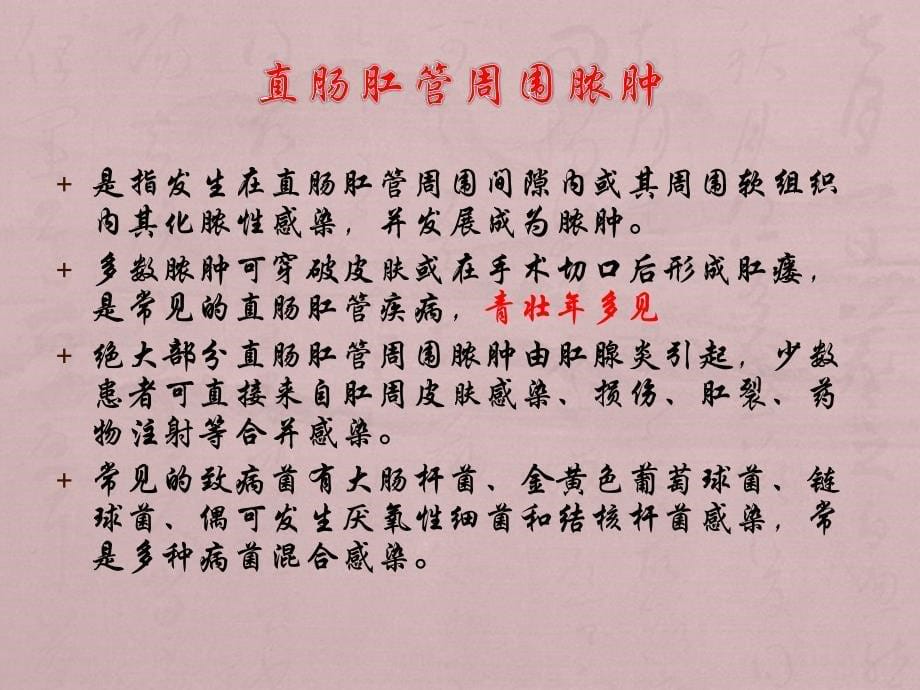 直肠肛管周围脓肿
+ 是指发生在直肠肛管周围间隙内或其周围软组织
内其化脓性感染，并发展成为脓肿。
+ 多数脓肿可穿破皮肤或在手术切口后形成肛瘘，
是常见的直肠肛管疾病，青壮年多见
+ 绝大部分直肠肛管周围脓肿由肛腺炎引起，少数
患者可直接来自肛周皮肤感染、损伤、肛裂、药
物注射等合并感染。
+ 常见的致病菌有大肠杆菌、金黄色葡萄球菌、链
球菌、偶可发生厌氧性细菌和结核杆菌感染，常
是多种病菌混合感染。